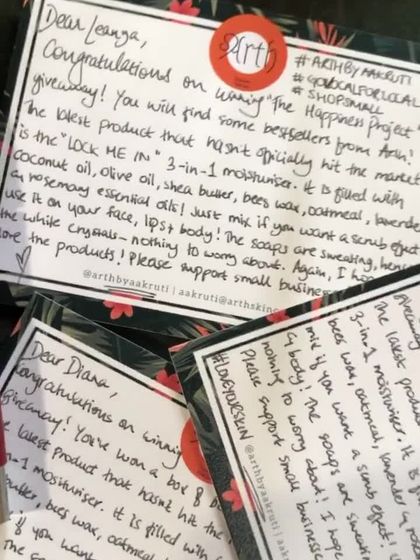 Dear Leanza,
Congratulations on winning "The Happiness Project"
giveaway! You will find some bestsellers from Arth!
The latest product that hasn't officially hit the market
is the "LOCK ME IN" 3-in-1 moisturiser. It is filled with
coconut oil, olive oil, shea butter, bees wax, oatmeal, lavender
rosemary essential oils! Just mix if you want a scrub effect
use it on your face, lips + body! The soaps are sweating, hence
the white crystals - nothing to worry about. Again, I hope
love the products! Please support small business
@arthbyaakruti | aakruti@arthskinc
arth
#ARTHBYAAKRUTI
#GOLOCALFORLOCAL
#SHOPSMALL
Dear Diana,
Congratulations on winning
giveaway! You've won a box of
latest product that hasn't hit the
in-1 moisturiser. It is filled with
butter, bees wax, oatmeal
if you want
The
The latest prod
3-in-1 moisturiser. It
bees wax, oatmeal, lavender
mix if you want a scrub effect
body! The soaps are sweati
nothing to worry about! I hope
Please support small business
#LOVEYOURSKIN
@arthbyaakruti